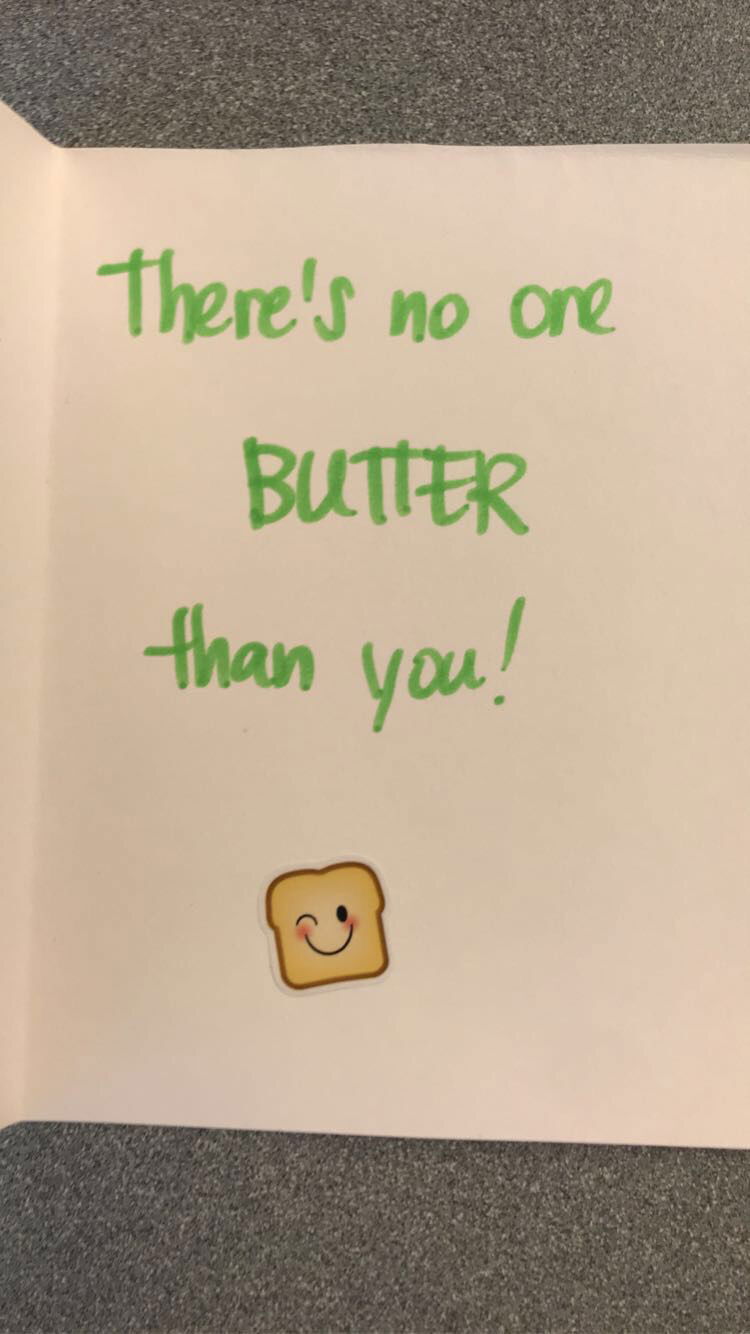 There's no one
BUTTER
than you!